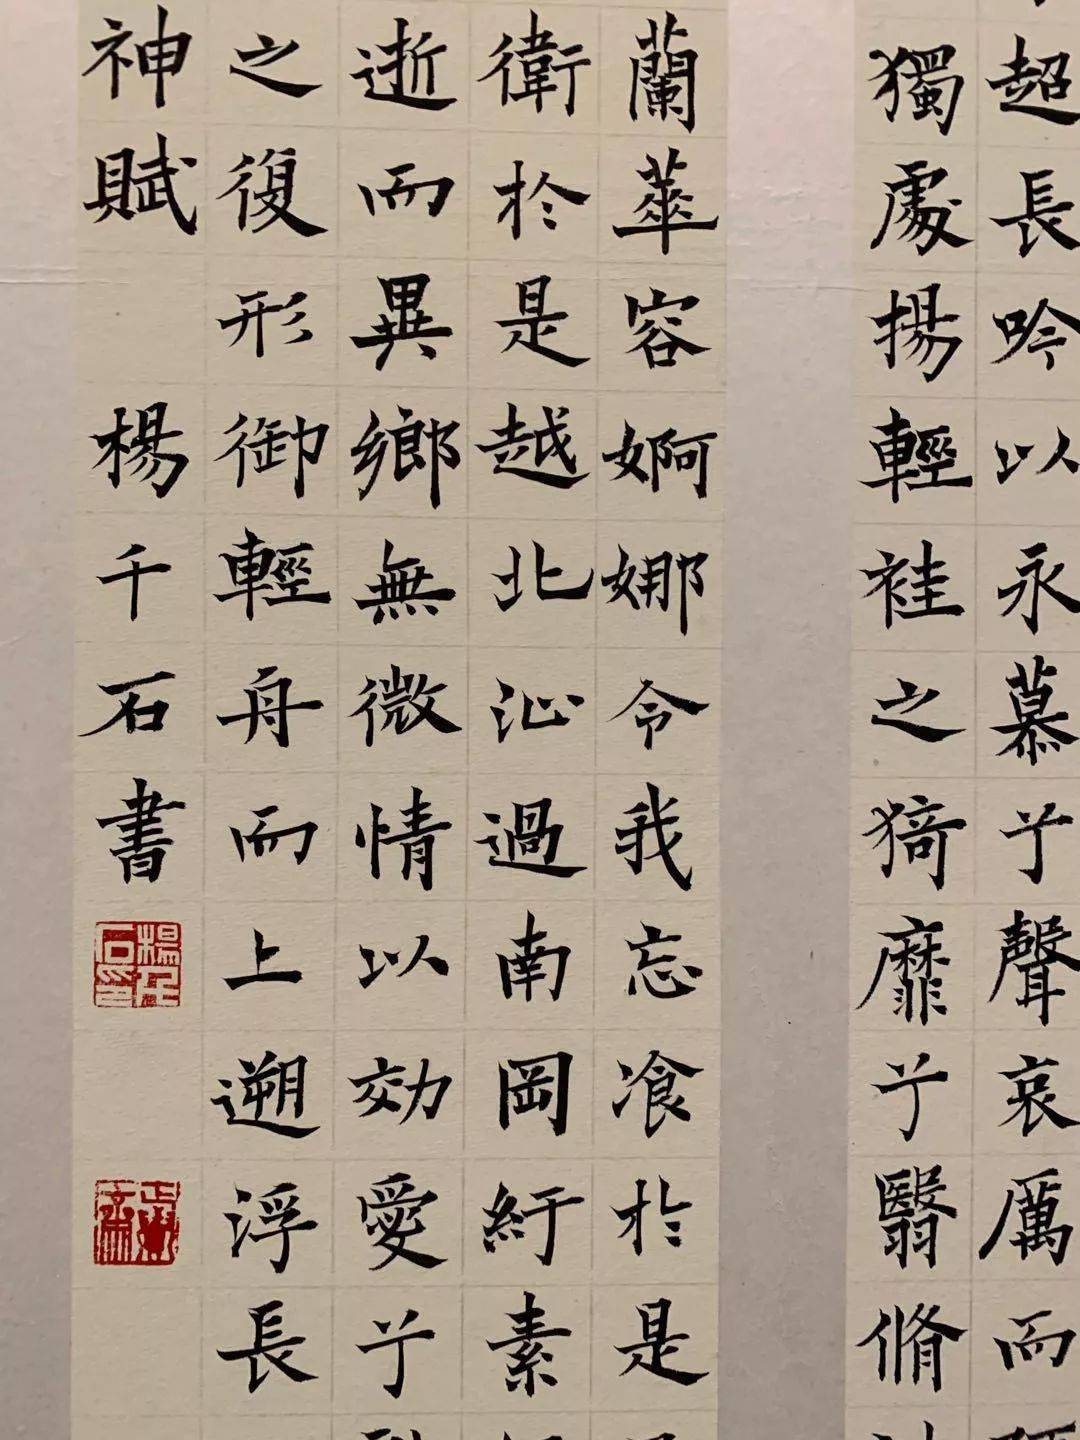 超長吟以永慕兮聲哀厲而
獨處揚輕袿之猗靡兮翳脩
蘭華容婀娜令我忘飡於是
衛於是越北沚過南岡紆素
逝而異鄉無微情以効愛兮
之復形御輕舟而上遡浮長
神賦 楊千石書
楊千石印